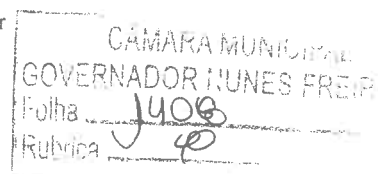 r
CÂMARA MUNICIPAL
GOVERNADOR NUNES FREIRE
Folha 1408
Rubrica